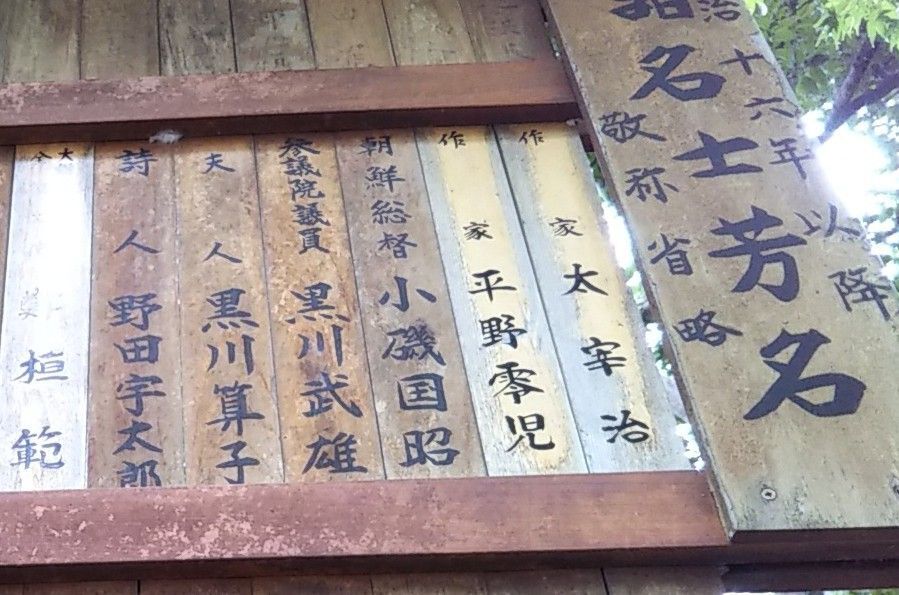 治十六年以降
名士芳名
敬称省略
作家 太宰治
作家 平野零児
朝鮮総督 小磯国昭
参議院議員 黒川武雄
夫人 黒川算子
詩人 野田宇太郎
大 桓範